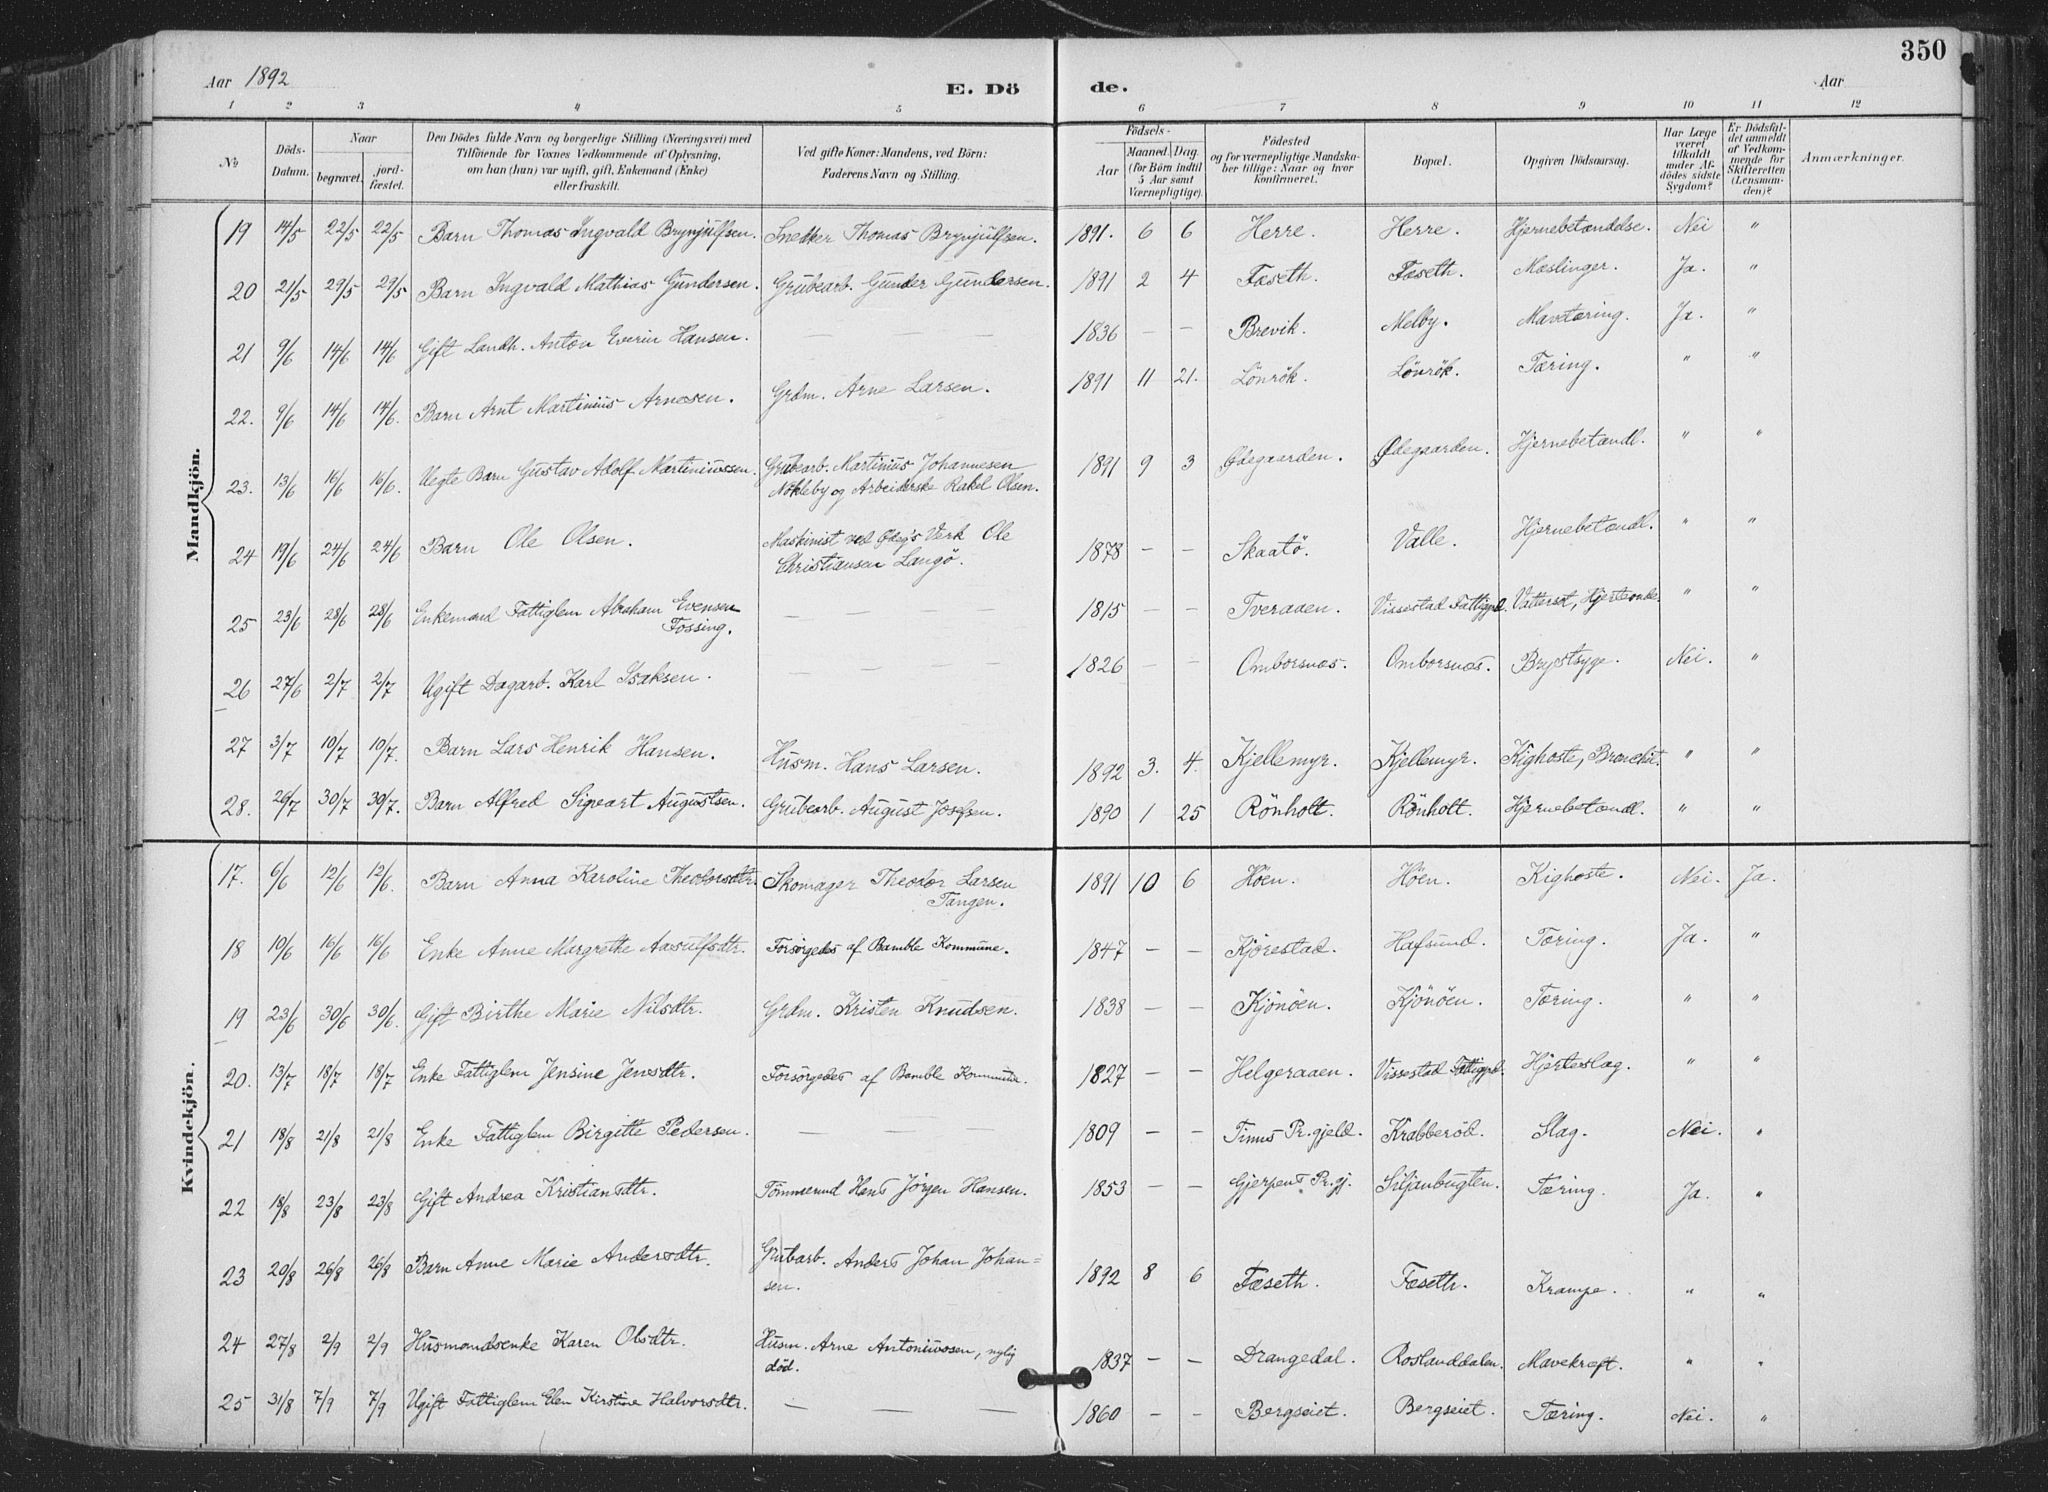 350
Aar 1892
E. Dö
de.
Aar
1 2 3 4 5 6 7 8 9 10 11 12
No
Döds-Datum.
Naar
begravet.
jord-fæstet.
Den Dödes fulde Navn og borgerlige Stilling (Næringsvei) med
Tilföiende for Voxnes Vedkommende af Oplysning,
om han (hun) var ugift, gift, Enkemand (Enke)
eller fraskilt.
Ved gifte Koner: Mandens, ved Börn:
Faderens Navn og Stilling.
Födsels-
Aar
Maaned. Dag.
(for Börn indtil
5 Aar samt
Værnepligtige).
Födested
og for værnepligtige Mandska-
ber tillige: Naar og hvor
konfirmeret.
Bopæl.
Opgiven Dödsaarsag.
Har Læge
været
tilkaldt
under Af-
dödes sidste
Sygdom?
Er Dödsfal-
det anmeldt
af Vedkom-
mende for
Skifteretten
(Lensman-
den)?
Anmærkninger.
Mandkjön.
19 14/5 22/5 22/5 Barn Thomas Ingvald Brynjulfsen. Snekker Thomas Brynjulfsen. 1891. 6 6 Herre. Herre. Hjernebetændelse. Nei "
20 21/5 29/5 29/5 Barn Ingvald Mathias Gundersen. Grubearb. Gunder Gundersen. 1891 2 4 Fæseth. Fæseth. Mæslinger. Ja. "
21 9/6 14/6 14/6 Gift Landh. Anton Everin Hansen. — — 1836 — — Brevik. Melby. Mavetæring. Ja. "
22. 9/6 14/6 14/6. Barn Arnt Martinius Arnesen. Grdm. Arne Larsen. 1891 11 21. Lönrök. Lönrök. Tæring. " "
23. 13/6 16/6 16/6. Uegte Barn Gustav Adolf Martiniussen. Grubearb. Martinius Johannesen
Nökleby og Arbeiderske Rakel Olsen. 1891 9 3 Ødegaarden. Ødegaarden. Hjernebetændl. " "
24 19/6 24/6 24/6 Barn Ole Olsen. Maskinist ved Ødeg's Verk Ole
Christiansen Langö. 1878 — — Skaatö. Valle. Hjernebetændl. " "
25 23/6 28/6 28/6 Enkemand Fattiglem Abraham Evensen
Fossing. — 1815 — — Tveraaen. Vissestad Fattiggd. Vattersot, Hjerteonde. " "
26 27/6 2/7 2/7 Ugift Dagarb. Karl Isaksen. — — — — 1826 — — Omborsnæs. Omborsnæs. Brystsyge. Nei. "
27 3/7 10/7 10/7. Barn Lars Henrik Hansen. Husm. Hans Larsen. 1892 3. 4. Kjellemyr. Kjellemyr. Kighoste, Bronchit. " "
28. 26/7 30/7 30/7. Barn Alfred Sigvart Augustsen. Grubearb. August Josefsen. 1890 1 25 Rönholt. Rönholt. Hjernebetændl. " "
Kvindekjön.
17. 6/6 12/6 12/6. Barn Anna Karoline Theodorsdtr. Skomager Theodor Larsen
Tangen. 1891 10 6 Höen. Höen. Kighoste. Nei. Ja.
18 10/6 16/6 16/6 Enke Anne Margrethe Aasulfsdtr. Forsörgedes af Bamble Kommune. 1847 — — Kjörestad. Hafsund. Tæring. Ja. "
19 23/6 30/6 30/6. Gift Birthe Marie Nilsdtr. Grdm. Kristen Knudsen. 1838 — — Kjönöen. Kjönöen. Tæring. " "
20. 13/7 18/7 18/7 Enke Fattiglem Jensine Jensdtr. Forsörgedes af Bamble Kommune. 1827 — — Helgeraaen. Vissestad Fattiggd. Hjerteslag. " "
21 18/8 21/8 21/8 Enke Fattiglem Birgitte Pedersen. — — — 1809 — — Tinns Pr.gjeld. Krabberöd. Slag. Nei. "
22 18/8 23/8 23/8 Gift Andrea Kristiansdtr. Tömmermd Hans Jörgen Hansen. 1853 — — Gjerpens Pr.gj. Siljanbugten. Tæring. Ja. "
23 20/8 26/8 26/8 Barn Anne Marie Andersdtr. Grubarb. Anders Johan Johan=
sen. 1892 8 6 Fæseth. Fæseth. Krampe. " "
24 27/8 2/9 2/9 Husmandsenke Karen Olsdtr. Husm. Arne Antoniussen, nylig
död. 1837 — — Drangedal. Roslanddalen. Mavekræft. " "
25 31/8 7/9 7/9 Ugift Fattiglem Elen Kirstine Halvorsdtr. — — — 1860 — — Bergseiet. Bergseiet. Tæring. Nei. "